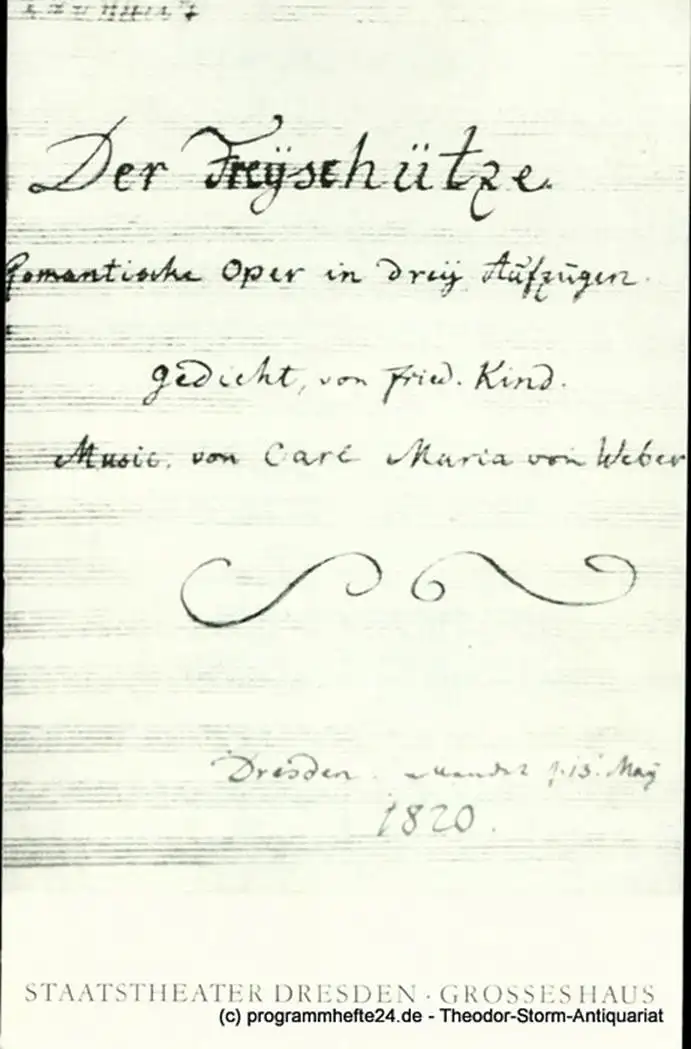 Der Freÿschütze.
Romantische Oper in dreÿ Aufzügen.
gedicht, von fried. Kind.
Music. von Carl Maria von Weber
Dresden. 13. Maÿ
1820.
STAATSTHEATER DRESDEN · GROSSES HAUS
(c) programmhefte24.de - Theodor-Storm-Antiquariat